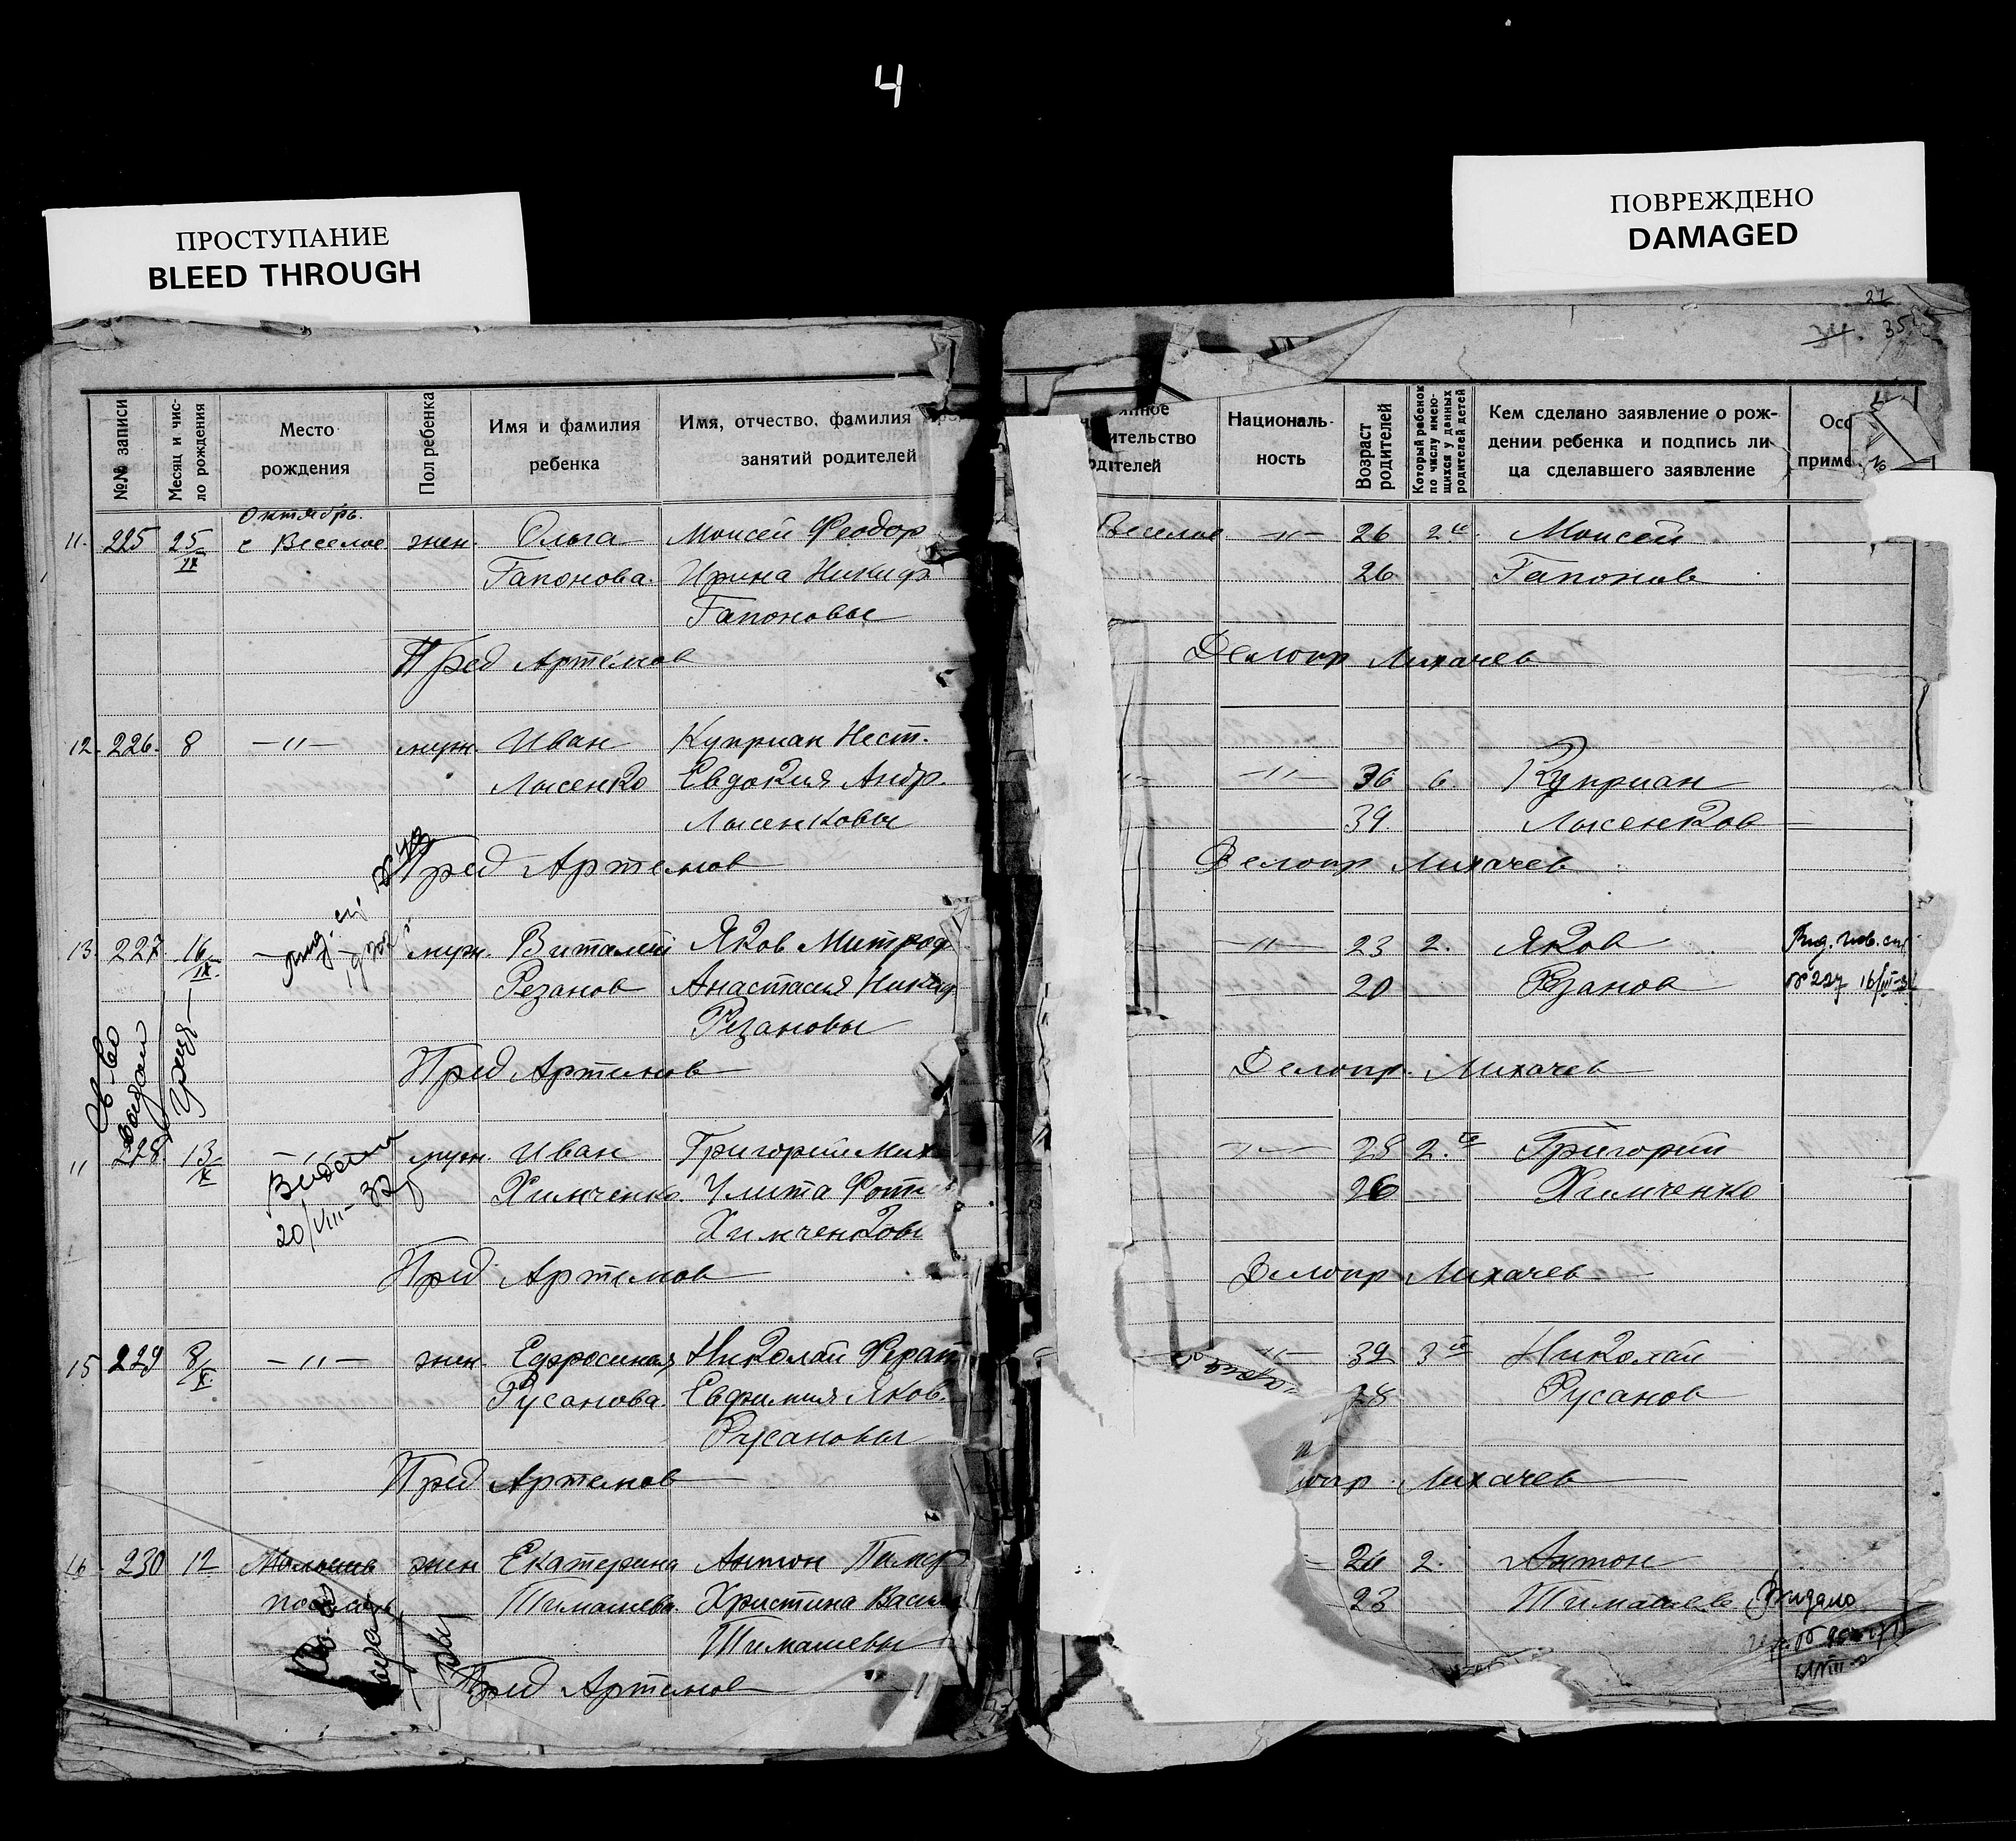 4
ПРОСТУПАНИЕ
BLEED THROUGH
ПОВРЕЖДЕНО
DAMAGED
27
34. 35
№№ записи
Месяц и чис-
ло рождения
Место
рождения
Пол ребенка
Имя и фамилия
ребенка
Имя, отчество, фамилия
занятий родителей
янное
ительство
одителей
Националь-
ность
Возраст
родителей
Который ребенок
по числу имею-
щихся у данных
родителей детей
Кем сделано заявление о рож-
дении ребенка и подпись ли-
ца сделавшего заявление
Осо
приме
Октябрь.
11. 225 25/IX с Веселое жен. Ольга Моисей Феодор Веселое —"— 26 2й Моисей
Гапонова. Ирина Никиф. 26 Гапонов
Гапоновы
Пред Артемов Делопр Лихачев
12. 226. 8 —"— муж. Иван Куприан Нест.
Лысенко Евдокия Андр. —"— 36 6. Куприан
Лысенковы 39. Лысенков
Пред Артемов Делопр Лихачев
13. 227 16/IX муж. Виталий Яков Митроф —"— 23 2. Яков
Резанов Анастасия Никиф. 20 Рзанов №227 16/III
Резановы
Пред Артемов Делопр. Лихачев
11 228 13/X муж. Иван Григорий Мих 28 2. Григорий
20/VIII Химченко. Улита Фот 26 Химченко
Химченковы
Пред Артемов Делопр Лихачев
15 229 8/X —"— жен. Ефросиния Николай Ферап —"— 39 3й Николай
Русанова. Евфимия Яков. 28 Русанов
Русановы
Пред Артемов лопр. Лихачев
16 230 12 жен Екатерина Антон Тимоф 2. Антон
Тимашева. Христина Васил 23 Тимашев Выдано
Тимашевы
Пред Артемов